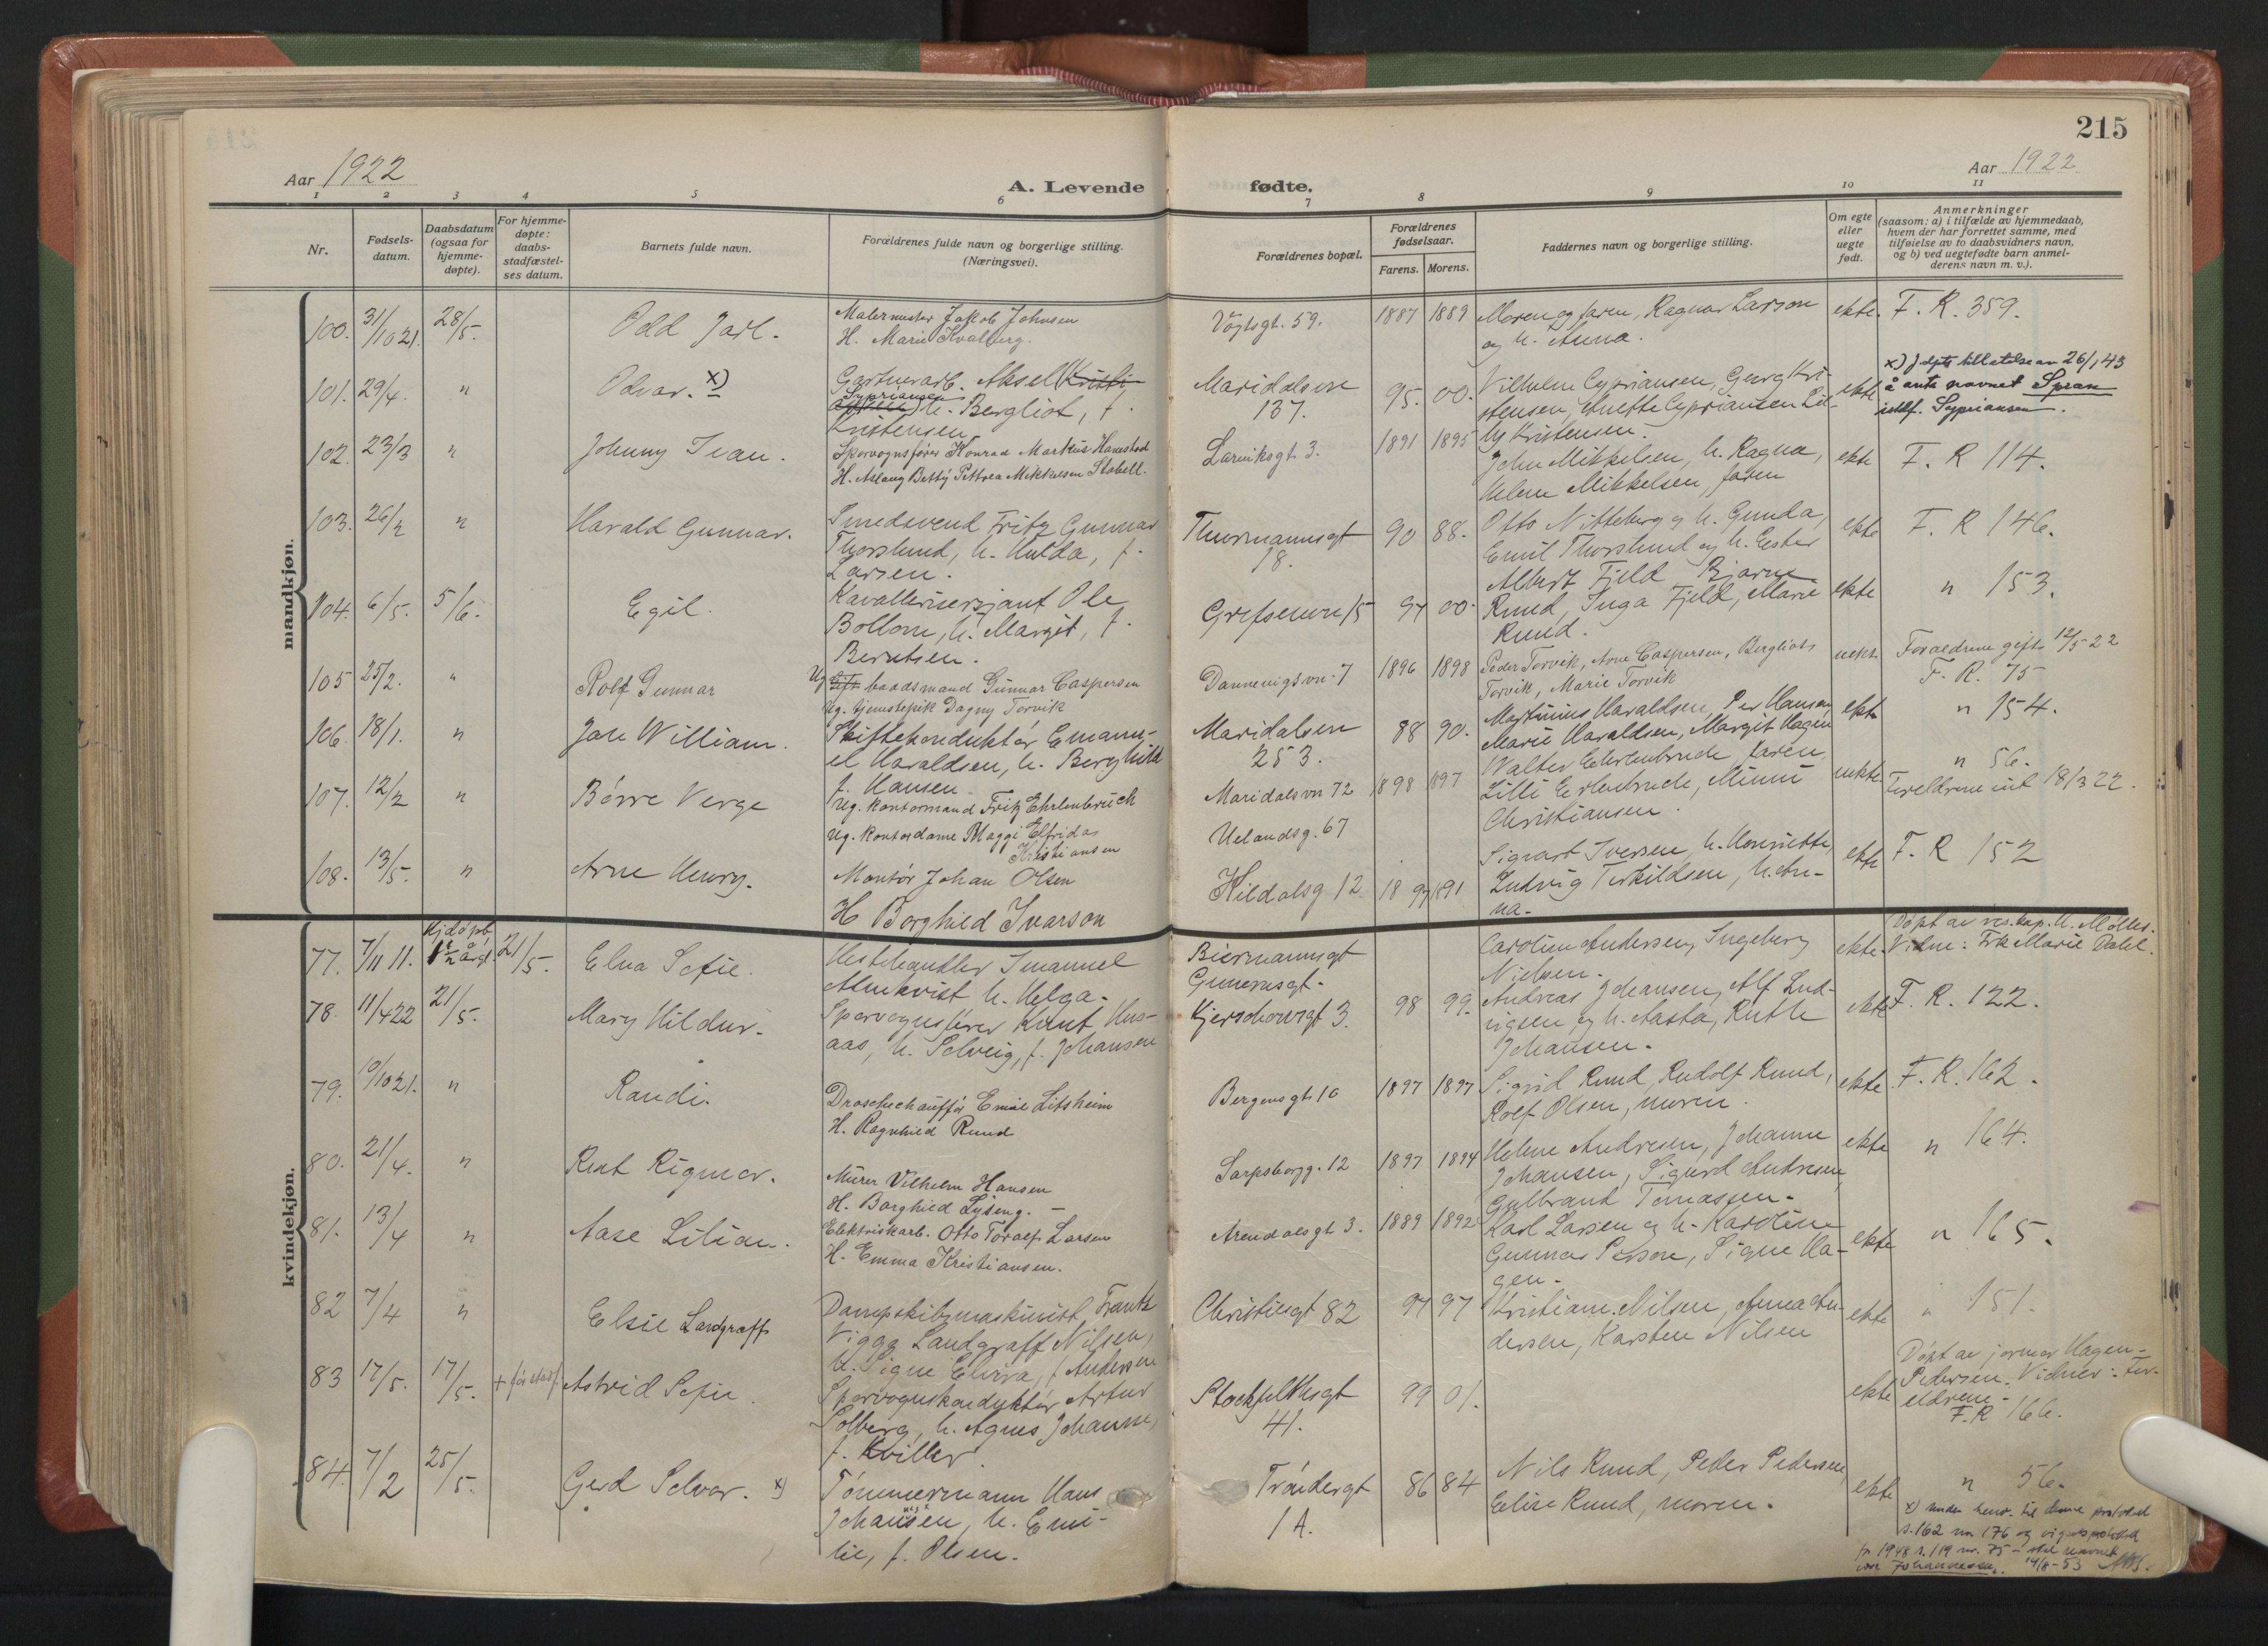 215
Aar 1922
A. Levende fødte.
Aar 1922
1 2 3 4 5 6 7 8 9 10 11
Nr.
Fødsels-
datum.
Daabsdatum
(ogsaa for
hjemme-
døpte).
For hjemme-
døpte:
daabs-
stadfæstel-
ses datum.
Barnets fulde navn.
Forældrenes fulde navn og borgerlige stilling.
(Næringsvei).
Forældrenes bopæl.
Forældrenes
fødselsaar.
Farens. Morens.
Faddernes navn og borgerlige stilling.
Om egte
eller
uegte
født.
Anmerkninger
(saasom: a) i tilfælde av hjemmedaab,
hvem der har forrettet samme, med
tilføielse av to daabsvidners navn,
og b) ved uegtefødte barn anmel-
derens navn m. v.).
mandkjøn.
100. 31/10 21. 28/5. Odd Jarl.
Malermester Jakob Johnsen
H. Marie Kvalberg.
Vogtsgt. 59. 1887 1889
Moren og faren, Ragnar Larson
og h. Anna.
ekte. F. R. 359.
101. 29/4. " Odvar. x)
Gartnerarb. Aksel Kristi-
Sypriansen h. Bergliot, f.
Kristensen
Maridalsvn
137.
95. 00.
Vilhelm Cypriansen, Georg Kri-
stensen, Anette Cypriansen Lil-
ly Kristensen.
ekte
x) J. dpts tillatelse av 26/1 43
å anta navnet Spran
istdf. Sypriansen.
102. 23/3 " Johnny Ivan.
Sporvognsfører Konrad Markus Hanestad
H. Aslaug Betty Pettrea Mikkelsen Stabell.
Larviksgt. 3. 1891 1895
John Mikkelsen, h. Ragna,
Helene Mikkelsen, faren
ekte F. R 114.
103. 26/2 " Harald Gunnar.
Smedsvend Fritz Gunnar
Thorslund, h. Hulda, f.
Larsen.
Thurmannsgt
18.
90 88.
Otto Nitteberg og h. Gunda,
Emil Thorslund og h. Ester
ekte F. R 146.
104. 6/5. 5/6. Egil.
Kavallerisersjant Ole
Bollom, h. Margit, f.
Berntsen.
Grefsenvn 15 97 00.
Albert Fjeld Bjarne
Ruud, Inga Fjeld, Marie
Ruud.
ekte " 153.
105 25/2. " Rolf Gunnar
Ug. baadsmand Gunnar Caspersen
Ug. tjenestepik Dagny Torvik
Dannevigsvn. 7 1896 1898
Peder Torvik, Arne Caspersen, Bergliot
Torvik, Marie Torvik
uekte
Foraeldrene gifte 12/5 22
F. R. 75
106. 18/1. " Jan William.
Skiftekonduktør Emanu-
el Haraldsen, h. Berghild
f. Hansen
Maridalsvn
253.
88 90.
Martinius Haraldsen, Per Hansen,
Marie Haraldsen, Margit Hagen
ekte " 154.
107. 12/2 " Børre Verge
Ug. kontormand Fritz Ehrlenbruch
Ug. kontordame Maggi Elfrida
Kristiansen
Maridalsvn 72
Uelandsg. 67
1898 1897
Walter Ehrlenbruck, Karen,
Lilli Erlenbruck, Minni
Christiansen.
uekte
" 56.
Foreldrene viet 18/3 22.
108. 13/5. " Arne Henry.
Montør Johan Olsen
H Borghild Ivarson
Kildalsg 12 1897 1891
Sigvart Iversen, h. Henriette,
Ludvig Terkildsen, h. An-
na.
ekte F. R 152
kvindekjøn.
77. 7/11 11. Hjdøpt
1 1/2 år gl. 21/5. Elna Sofie.
Hestehandler Imanuel
Almkvist h. Helga.
Biermannsgt
Gunerusgt.
Caroline Andersen, Ingeborg
Nielsen.
ekte.
Døpt av res. kap. H. Møller.
Vidne: Frk Marie Dahl.
78. 11/4 22 21/5. Mary Hildur.
Sporvognsfører Knut Hus-
aas, h. Solveig, f. Johansen
Kjerschowsgt 3. 98 99.
Andreas Johansen, Alf Lud-
vigsen og h. Aasta, Ruth
Johansen.
ekte F. R. 122.
79. 19/10 21. " Randi.
Droschechauffør Emil Litsheim
H. Ragnhild Ruud
Bergensgt. 16 1897 1897
Sigrid Ruud, Rudolf Ruud,
Rolf Olsen, moren.
ekte F. R. 162.
80. 21/4. " Rut Rigmor.
Murer Vilhelm Hansen
H. Borghild Lyseng.
Sarpsborgg. 12 1897 1894
Helene Andresen, Johanne
Johansen, Sigurd Andresen,
Gulbrand Tomassen.
ekte " 164.
81. 13/4 " Aase Lilian.
Elektriskarb. Otto Toralf Larsen
H. Emma Kristiansen.
Arendalsgt. 3. 1889 1892
Karl Larsen og h. Karoline
Gunnar Persson, Signe Ha-
gen.
ekte " 165.
82 7/4 " Elsie Landgraff
Dampskibsmaskinist Frantz
Viggo Landgraff Nilsen,
h. Signe Elvira, f. Andersen
Christiesgt 82 94 97
Kristiane Nilsen, Anna An-
dersen, Karsten Nilsen
ekte " 151.
83 17/5. 17/5. + før stadf. Astrid Sofie.
Sporvognskonduktør Artur
Solberg, h. Agnes Johanne,
f. Kviller.
Stockflethsgt
41.
99 01.
ekte
Døpt av jormor Hagen-
Pedersen. Vidner: For-
eldrene.
F. R 166.
84. 7/2 25/5. Gerd Solvor. x)
Tømmermann Hans
Johansen, h. Emi-
lie, f. Olsen.
Trøndergt
1 A.
86 84
Nils Ruud, Peder Pedersen
Elise Ruud, moren.
ekte " 56.
x) under henv. til denne protokoll
s. 162 nr 176 og vigselsprotokoll
for 1948 s. 119 nr. 75 – skal navnet
være Johannessen. 14/8-53